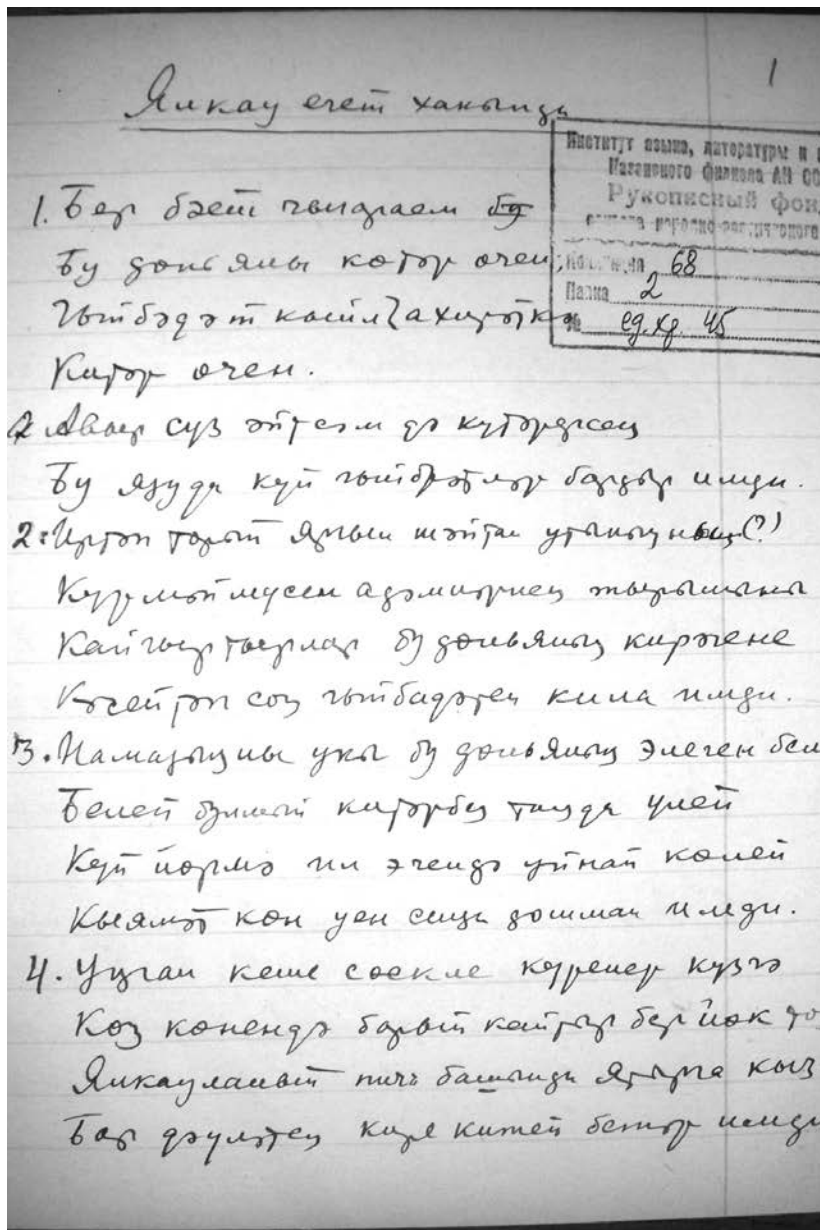 1
Ялкау егет хакында
Институт языка, литературы и
Казанского филиала АН СС
Рукописный фонд
68
Папка 2
№ ед.хр. 45
1. Бер бәет чыгараем бу
Бу дөньяны көтәр өчен,
Гыйбәдәт кыйл ахирәткә
Китәр өчен.
2 Авыр сүз әйтсәм дә күтәрәсең
Бу язуда күп гыйбрәтләр бардыр имди.
2. Иртән торып ялгыш шәйтан утыныңның (?)
Күрмәймесең адәмнәрнең
Кайгыртырлар бу дөньяның кирәгене
Кәсеп итәп соң гыйбадәтең кила имди.
3. Намазыңны укы бу дөньяның элеген бел
Белеп булмый китәрбез таңда үлеп
Күп йөрмә ил эчендә уйнап көлеп
Кыямәт көн уен сиңа дошман имди.
4. Уңган кеше сөекле күренер күзгә
Көз көнендә барып кайтыр бер йөк
Ялкауланып пич башында ятырга кыз
Бар дәүләтең кире китеп бетәр имди